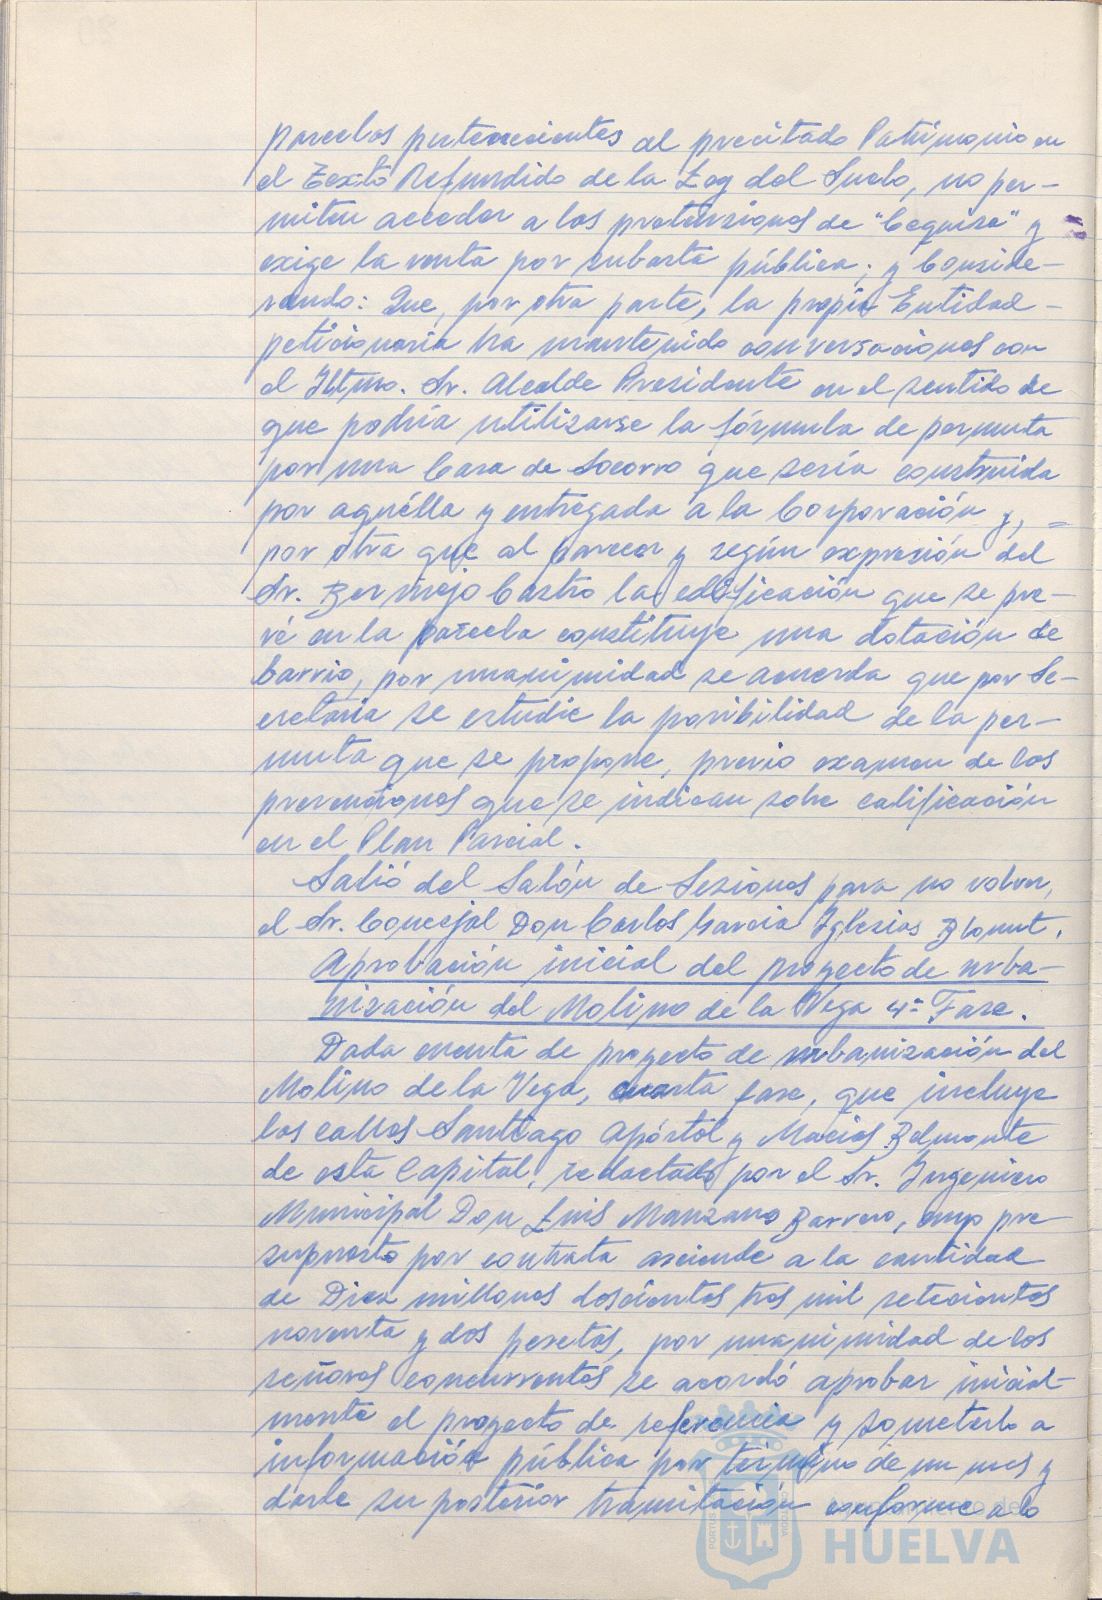 parcelas pertenecientes al precitado Patrimonio en
el Texto Refundido de la Ley del Suelo, no per-
miten acceder a las pretensiones de "Cequisa" y
exige la venta por subasta pública; y Conside-
rando: Que, por otra parte, la propia Entidad -
peticionaria ha mantenido conversaciones con
el Iltmo. Sr. Alcalde Presidente en el sentido de
que podría utilizarse la fórmula de permuta
por una Casa de Socorro que sería construida
por aquélla y entregada a la Corporación y, =
por otra que al parecer y según expresión del
Sr. Bermejo Castro la edificación que se pre-
vé en la parcela constituye una dotación de
barrio, por unanimidad se acuerda que por Se-
cretaría se estudie la posibilidad de la per-
muta que se propone, previo examen de las
prevenciones que se indican sobre calificación
en el Plan Parcial.
Salió del Salón de Sesiones para no volver,
el Sr. Concejal Don Carlos García Iglesias Blanut.
Aprobación inicial del proyecto de urba-
nización del Molino de la Vega 4ª Fase.
Dada cuenta de proyecto de urbanización del
Molino de la Vega, cuarta fase, que incluye
las calles Santiago Apóstol y Macías Belmonte
de esta Capital, redactado por el Sr. Ingeniero
Municipal Don Luis Manzano Barrero, cuyo pre
supuesto por contrata asciende a la cantidad
de Diez millones doscientas tres mil setecientas
noventa y dos pesetas, por unanimidad de los
señores concurrentes se acordó aprobar inicial-
mente el proyecto de referencia y someterlo a
información pública por término de un mes y
darle su posterior tramitación conforme a lo
Ayuntamiento de
HUELVA
PORTUS CUSTODIA